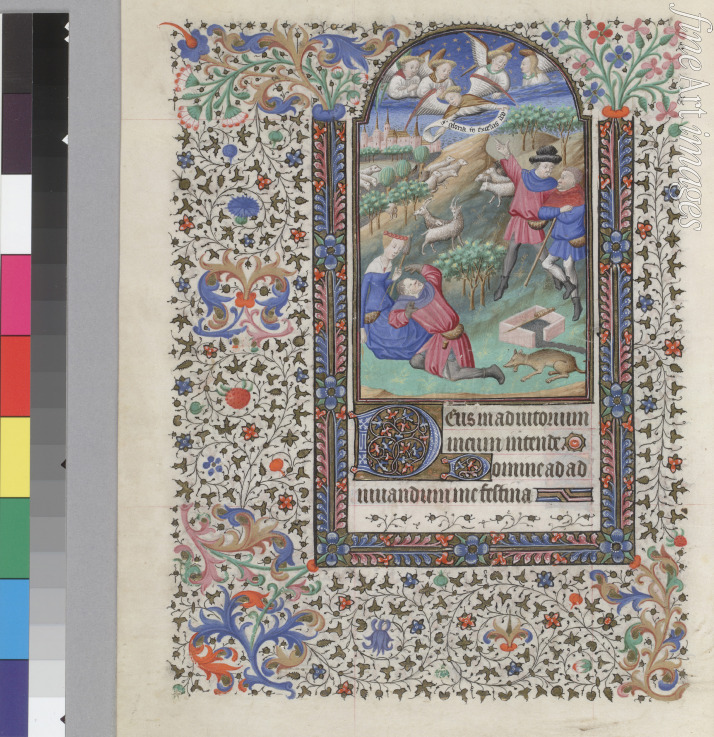 Gloria in excelsis deo
Deus in adiutorium
meum intende
Domine ad ad
iuuandum me festina
fine Art images